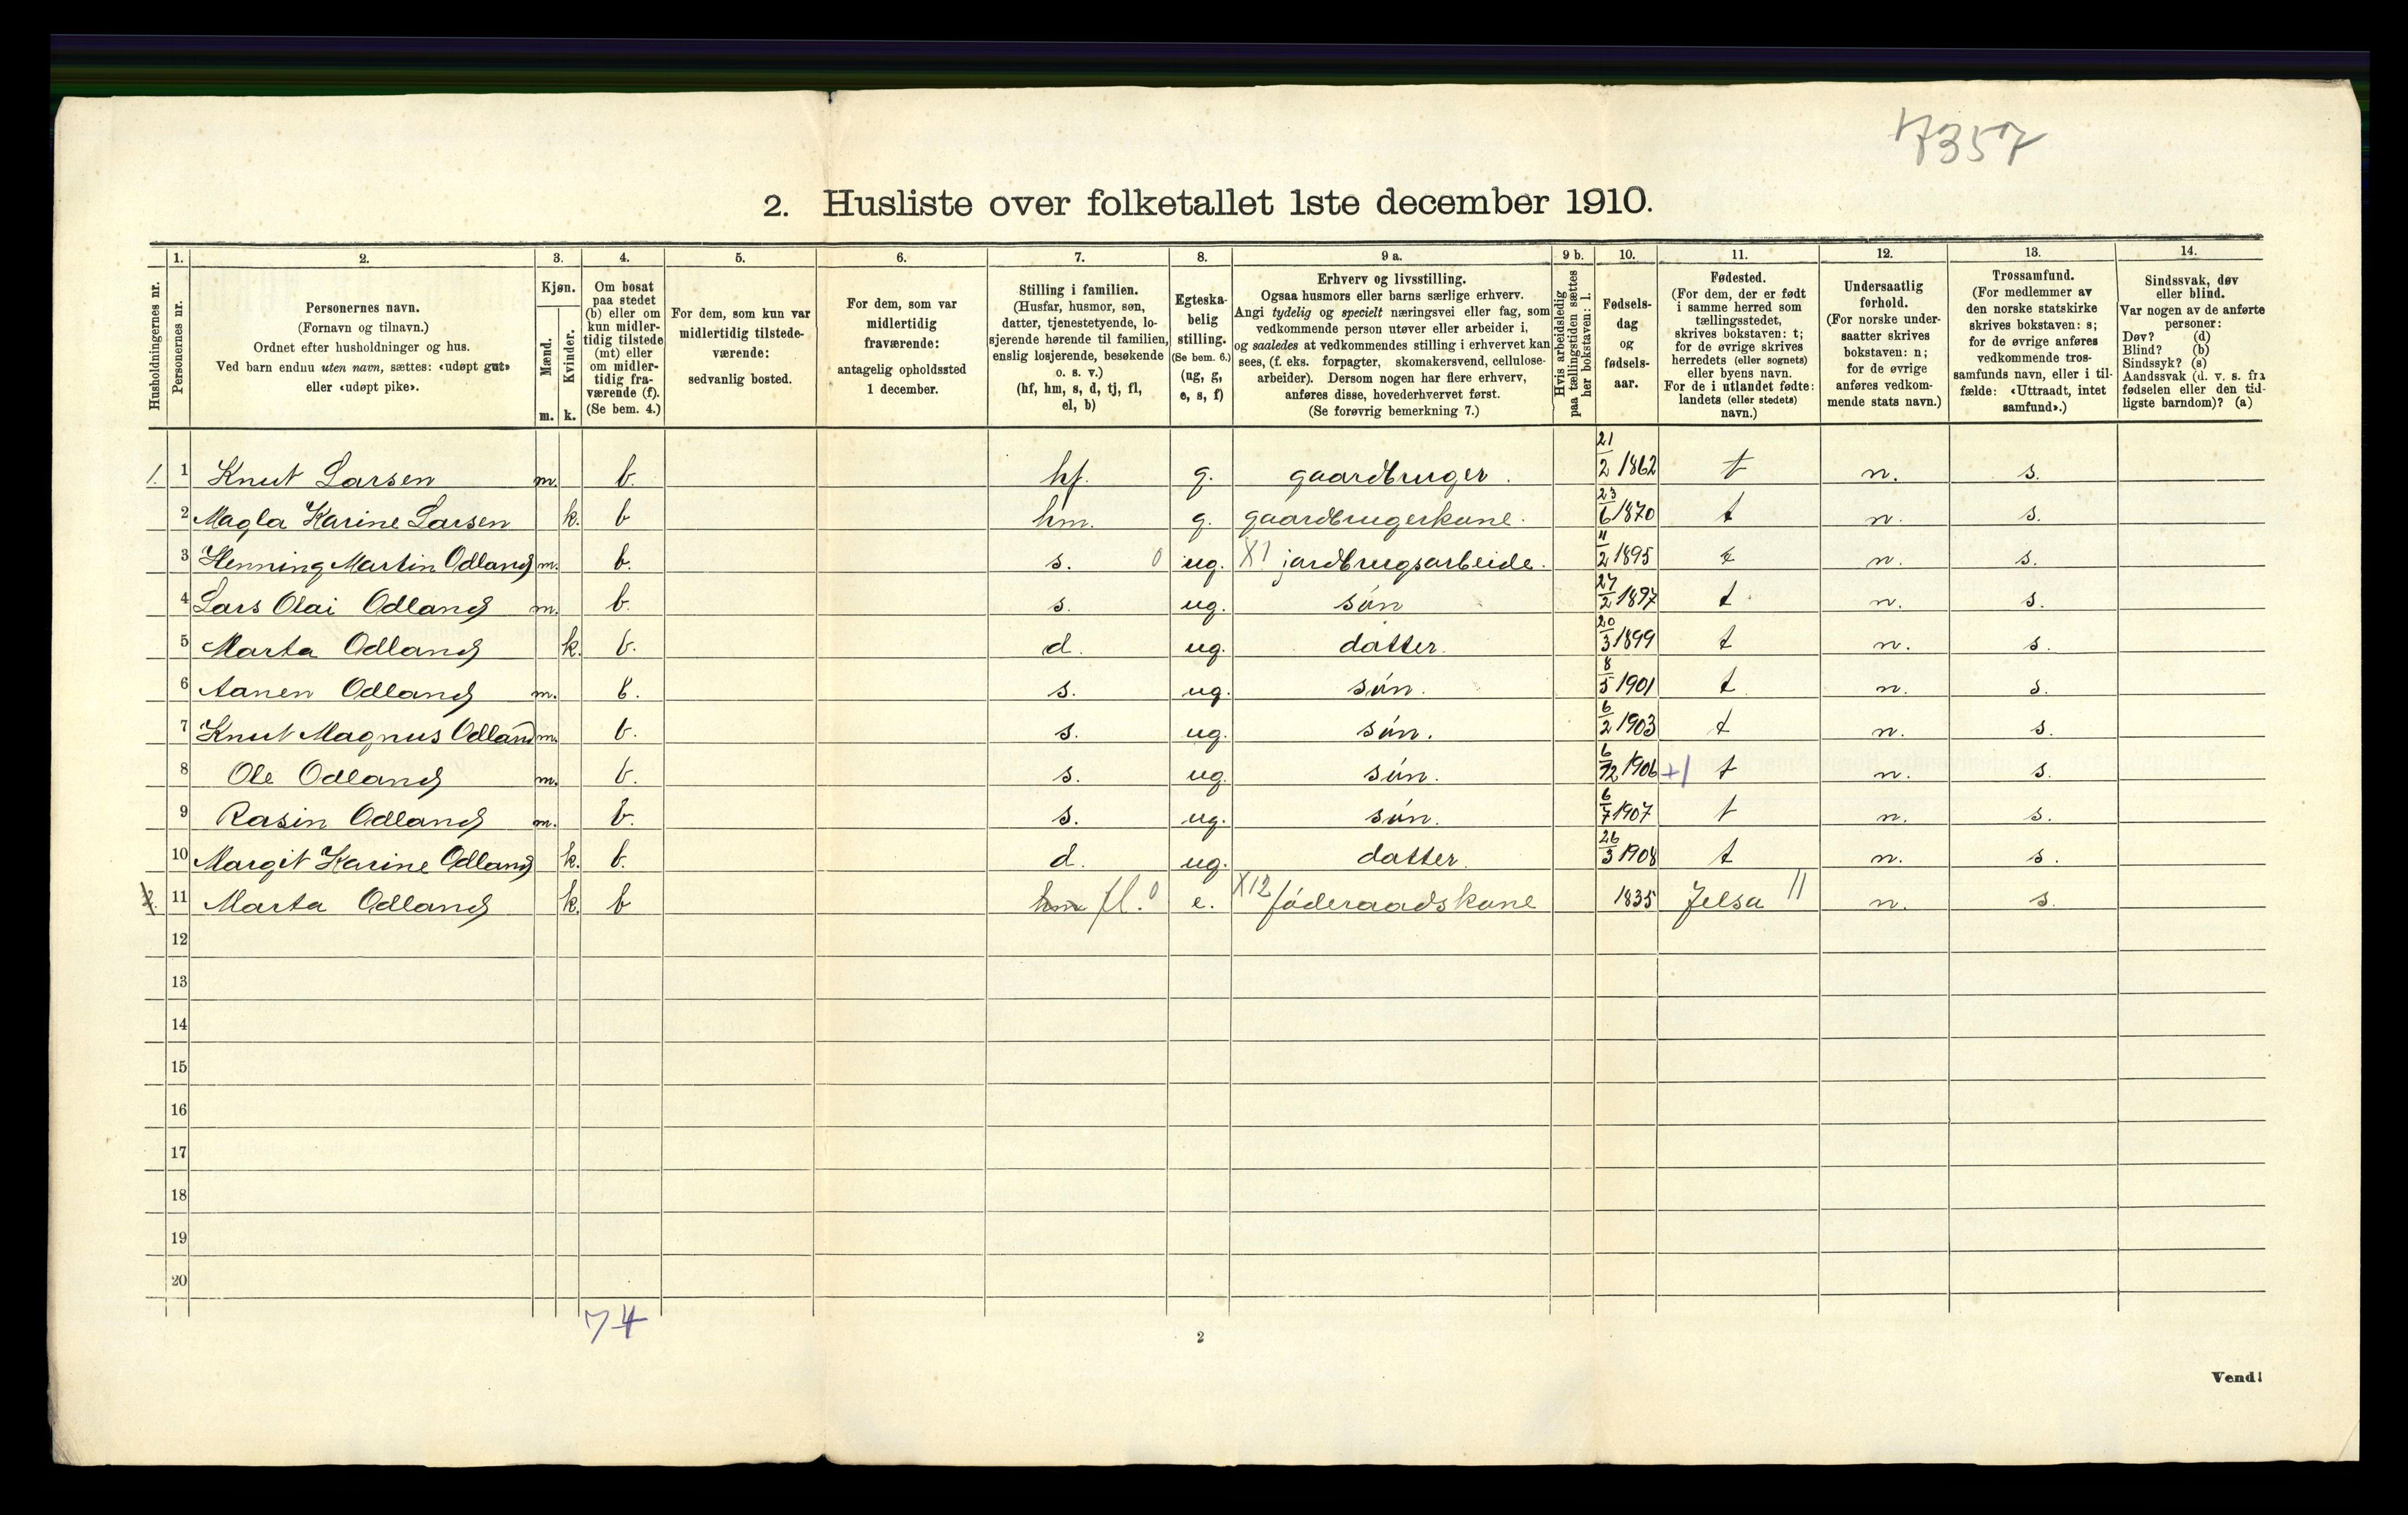 7357
2. Husliste over folketallet 1ste december 1910.
Husholdningernes nr.
1. Personernes nr.
2. Personernes navn.
(Fornavn og tilnavn.)
Ordnet efter husholdninger og hus.
Ved barn endnu uten navn, sættes: «udøpt gut»
eller «udøpt pike».
3. Kjøn.
Mænd. m.
Kvinder. k.
4. Om bosat
paa stedet
(b) eller om
kun midler-
tidig tilstede
(mt) eller
om midler-
tidig fra-
værende (f).
(Se bem. 4.)
5. For dem, som kun var
midlertidig tilstede-
værende:
sedvanlig bosted.
6. For dem, som var
midlertidig
fraværende:
antagelig opholdssted
1 december.
7. Stilling i familien.
(Husfar, husmor, søn,
datter, tjenestetyende, lo-
sjerende hørende til familien,
enslig losjerende, besøkende
o. s. v.)
(hf, hm, s, d, tj, fl,
el, b)
8. Egteska-
belig
stilling.
(Se bem. 6.)
(ug, g,
e, s, f)
9 a. Erhverv og livsstilling.
Ogsaa husmors eller barns særlige erhverv.
Angi tydelig og specielt næringsvei eller fag, som
vedkommende person utøver eller arbeider i,
og saaledes at vedkommendes stilling i erhvervet kan
sees, (f. eks. forpagter, skomakersvend, cellulose-
arbeider). Dersom nogen har flere erhverv,
anføres disse, hovederhvervet først.
(Se forøvrig bemerkning 7.)
9 b. Hvis arbeidsledig
paa tællingstiden sættes
her bokstaven: l.
10. Fødsels-
dag
og
fødsels-
aar.
11. Fødested.
(For dem, der er født
i samme herred som
tællingsstedet,
skrives bokstaven: t;
for de øvrige skrives
herredets (eller sognets)
eller byens navn.
For de i utlandet fødte:
landets (eller stedets)
navn.)
12. Undersaatlig
forhold.
(For norske under-
saatter skrives
bokstaven: n;
for de øvrige
anføres vedkom-
mende stats navn.)
13. Trossamfund.
(For medlemmer av
den norske statskirke
skrives bokstaven: s;
for de øvrige anføres
vedkommende tros-
samfunds navn, eller i til-
fælde: «Uttraadt, intet
samfund».)
14. Sindssvak, døv
eller blind.
Var nogen av de anførte
personer:
Døv? (d)
Blind? (b)
Sindssyk? (s)
Aandssvak (d. v. s. fra
fødselen eller den tid-
ligste barndom)? (a)
1. 1 Knut Larsen m. b. hf. g. gaardbruger. 21/2 1862 t n. s.
2 Magla Karine Larsen k. b hm. g. gaardbrugerkone. 23/6 1870 t n. s.
3 Henning Martin Odland m. b. s. 0 ug. X1 jordbrugsarbeide. 11/2 1895 t n. s.
4 Lars Olai Odland m. b. s. ug. søn 27/2 1897 t n. s.
5 Marta Odland k. b. d. ug. datter. 20/3 1899 t n. s.
6 Aanen Odland m. b. s. ug. søn. 8/5 1901 t n. s.
7 Knut Magnus Odland m. b. s. ug. søn. 6/2 1903 t n. s.
8 Ole Odland m. b. s. ug. søn. 6/12 1906 +1 t n. s.
9 Rasin Odland m. b. s. ug. søn. 6/7 1907 t n. s.
10 Margit Karine Odland k. b. d. ug. datter. 26/3 1908 t n. s.
2. 11 Marta Odland k. b hm fl. 0 e. X12 føderaadskone 1835 Jelsa 11 n. s.
12
13
14
15
16
17
18
19
20
7 4
2
Vend!